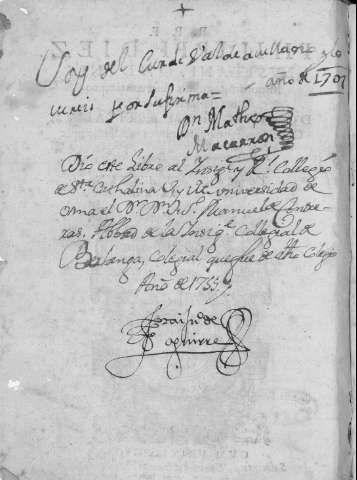 Soy del Cura de Valde avellano y lo
año de 1707
vereis por su firma=
Dn Matheo
Macarron
Dio este Libro al Insigne y Rl. Collegio
de Sta. Cathalina y Rl Universidad de
Osma el Sr. Dr. Ds. Manuel de Contre-
ras, Abbad de la Insige. Collegial de
Berlanga, Colegial que fue de dho Colegio
Año de 1753.
Frai Jn. de
Aguirre